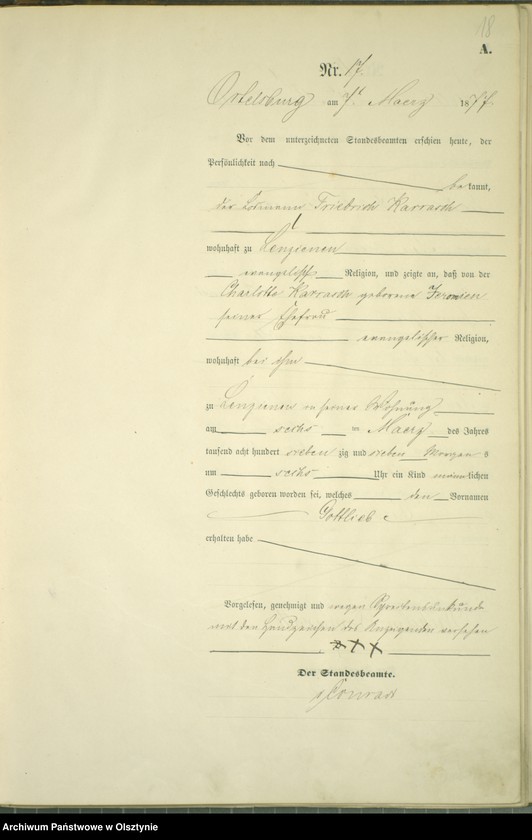 18
A.
Nr. 17.
Ortelsburg am 7t Maerz 1877.
Vor dem unterzeichneten Standesbeamten erschien heute, der
Persönlichkeit nach
bekannt,
der Losmann Friedrich Karrasch
wohnhaft zu Lenzienen
evangelischer Religion, und zeigte an, daß von der
Charlotte Karrasch geborene
seiner Ehefrau
evangelischer Religion,
wohnhaft bei ihm
zu Lenzienen in seiner Wohnung
am sechs ten Maerz des Jahres
tausend acht hundert sieben zig und sieben Morgens
um sechs Uhr ein Kind männlichen
Geschlechts geboren worden sei, welches den Vornamen
Gottlieb
erhalten habe
Vorgelesen, genehmigt und wegen Schreibensunkunde
mit den Handzeichen des Anzeigenden versehen
XXX
Der Standesbeamte.
Conrad
Archiwum Państwowe w Olsztynie